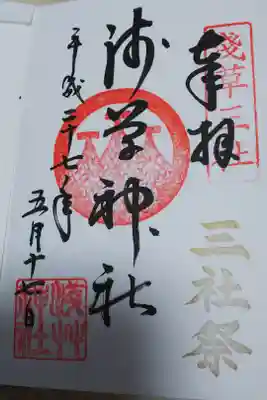 奉拝
淺草三社
三社祭
浅草神社
平成二十七年
五月十七日